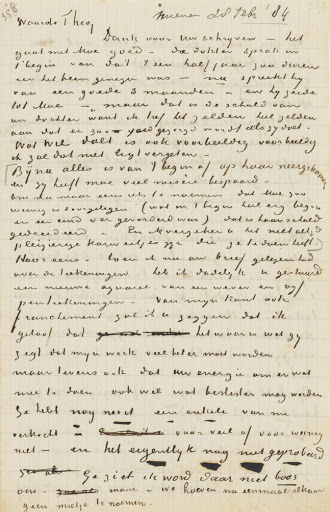 Nuenen 28 Febr 84
Waarde Theo,
Dank voor uw schrijven – het
gaat met Moe goed – de dokter sprak in
't begin van dat 't een half jaar zou duren
eer het been genezen was – nu spreekt hij
van een goede 3 maanden – en hij zeide
tot Moe – „maar dat is de schuld van
uw dochter want ik zelden
zelden
aan dat er zoo goed gezorgd wordt als zij doet.
Wat Wil doet is ook voorbeeldig voorbeeldig
ik zal dat niet ligt vergeten. –
Bijna alles is van 't begin af op haar neergekomen
en zij heeft Moe veel misère bespaard.
Om nu maar een iets te noemen dat Moe zoo
weinig is doorgelegen (wat in 't begin heel erg begon
en een eind ver gevorderd was) dat is haar schuld
gedecideerd En ik verzeker u het niet altijd
pleizierige karweitjes zijn die ze te doen heeft
Hoor eens – toen ik nu uw brief gelezen had
over de teekeningen heb ik dadelijk u gestuurd
een nieuwe aquarel van een wever en vijf
penteekeningen. – Van mijn kant ook
franchement zal ik u zeggen dat ik
geloof dat het waar is wat gij
zegt dat mijn werk veel beter moet worden
maar tevens ook dat uw energie om er wat
mee te doen ook wel wat beslister mag worden
Ge hebt nog nooit een enkele van me
verkocht – voor veel of voor weinig
niet – en het eigenlijk nog niet geprobeerd
Ge ziet ik word daar niet boos
om – maar – we hoeven nu eenmaal elkaar
geen mietje te noemen.